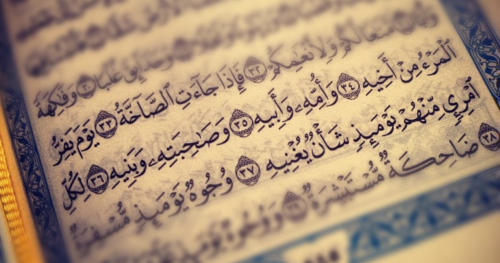 غُلْبًا ٣٠ وَفَٰكِهَةً
مَّتَٰعًا لَّكُمْ وَلِأَنْعَٰمِكُمْ ٣٢ فَإِذَا جَآءَتِ ٱلصَّآخَّةُ ٣٣ يَوْمَ يَفِرُّ
ٱلْمَرْءُ مِنْ أَخِيهِ ٣٤ وَأُمِّهِۦ وَأَبِيهِ ٣٥ وَصَٰحِبَتِهِۦ وَبَنِيهِ ٣٦ لِكُلِّ
ٱمْرِئٍ مِّنْهُمْ يَوْمَئِذٍ شَأْنٌ يُغْنِيهِ ٣٧ وُجُوهٌ يَوْمَئِذٍ مُّسْفِرَةٌ
٣٨ ضَاحِكَةٌ مُّسْتَبْشِرَةٌ ٣٩ وَوُجُوهٌ يَوْمَئِذٍ